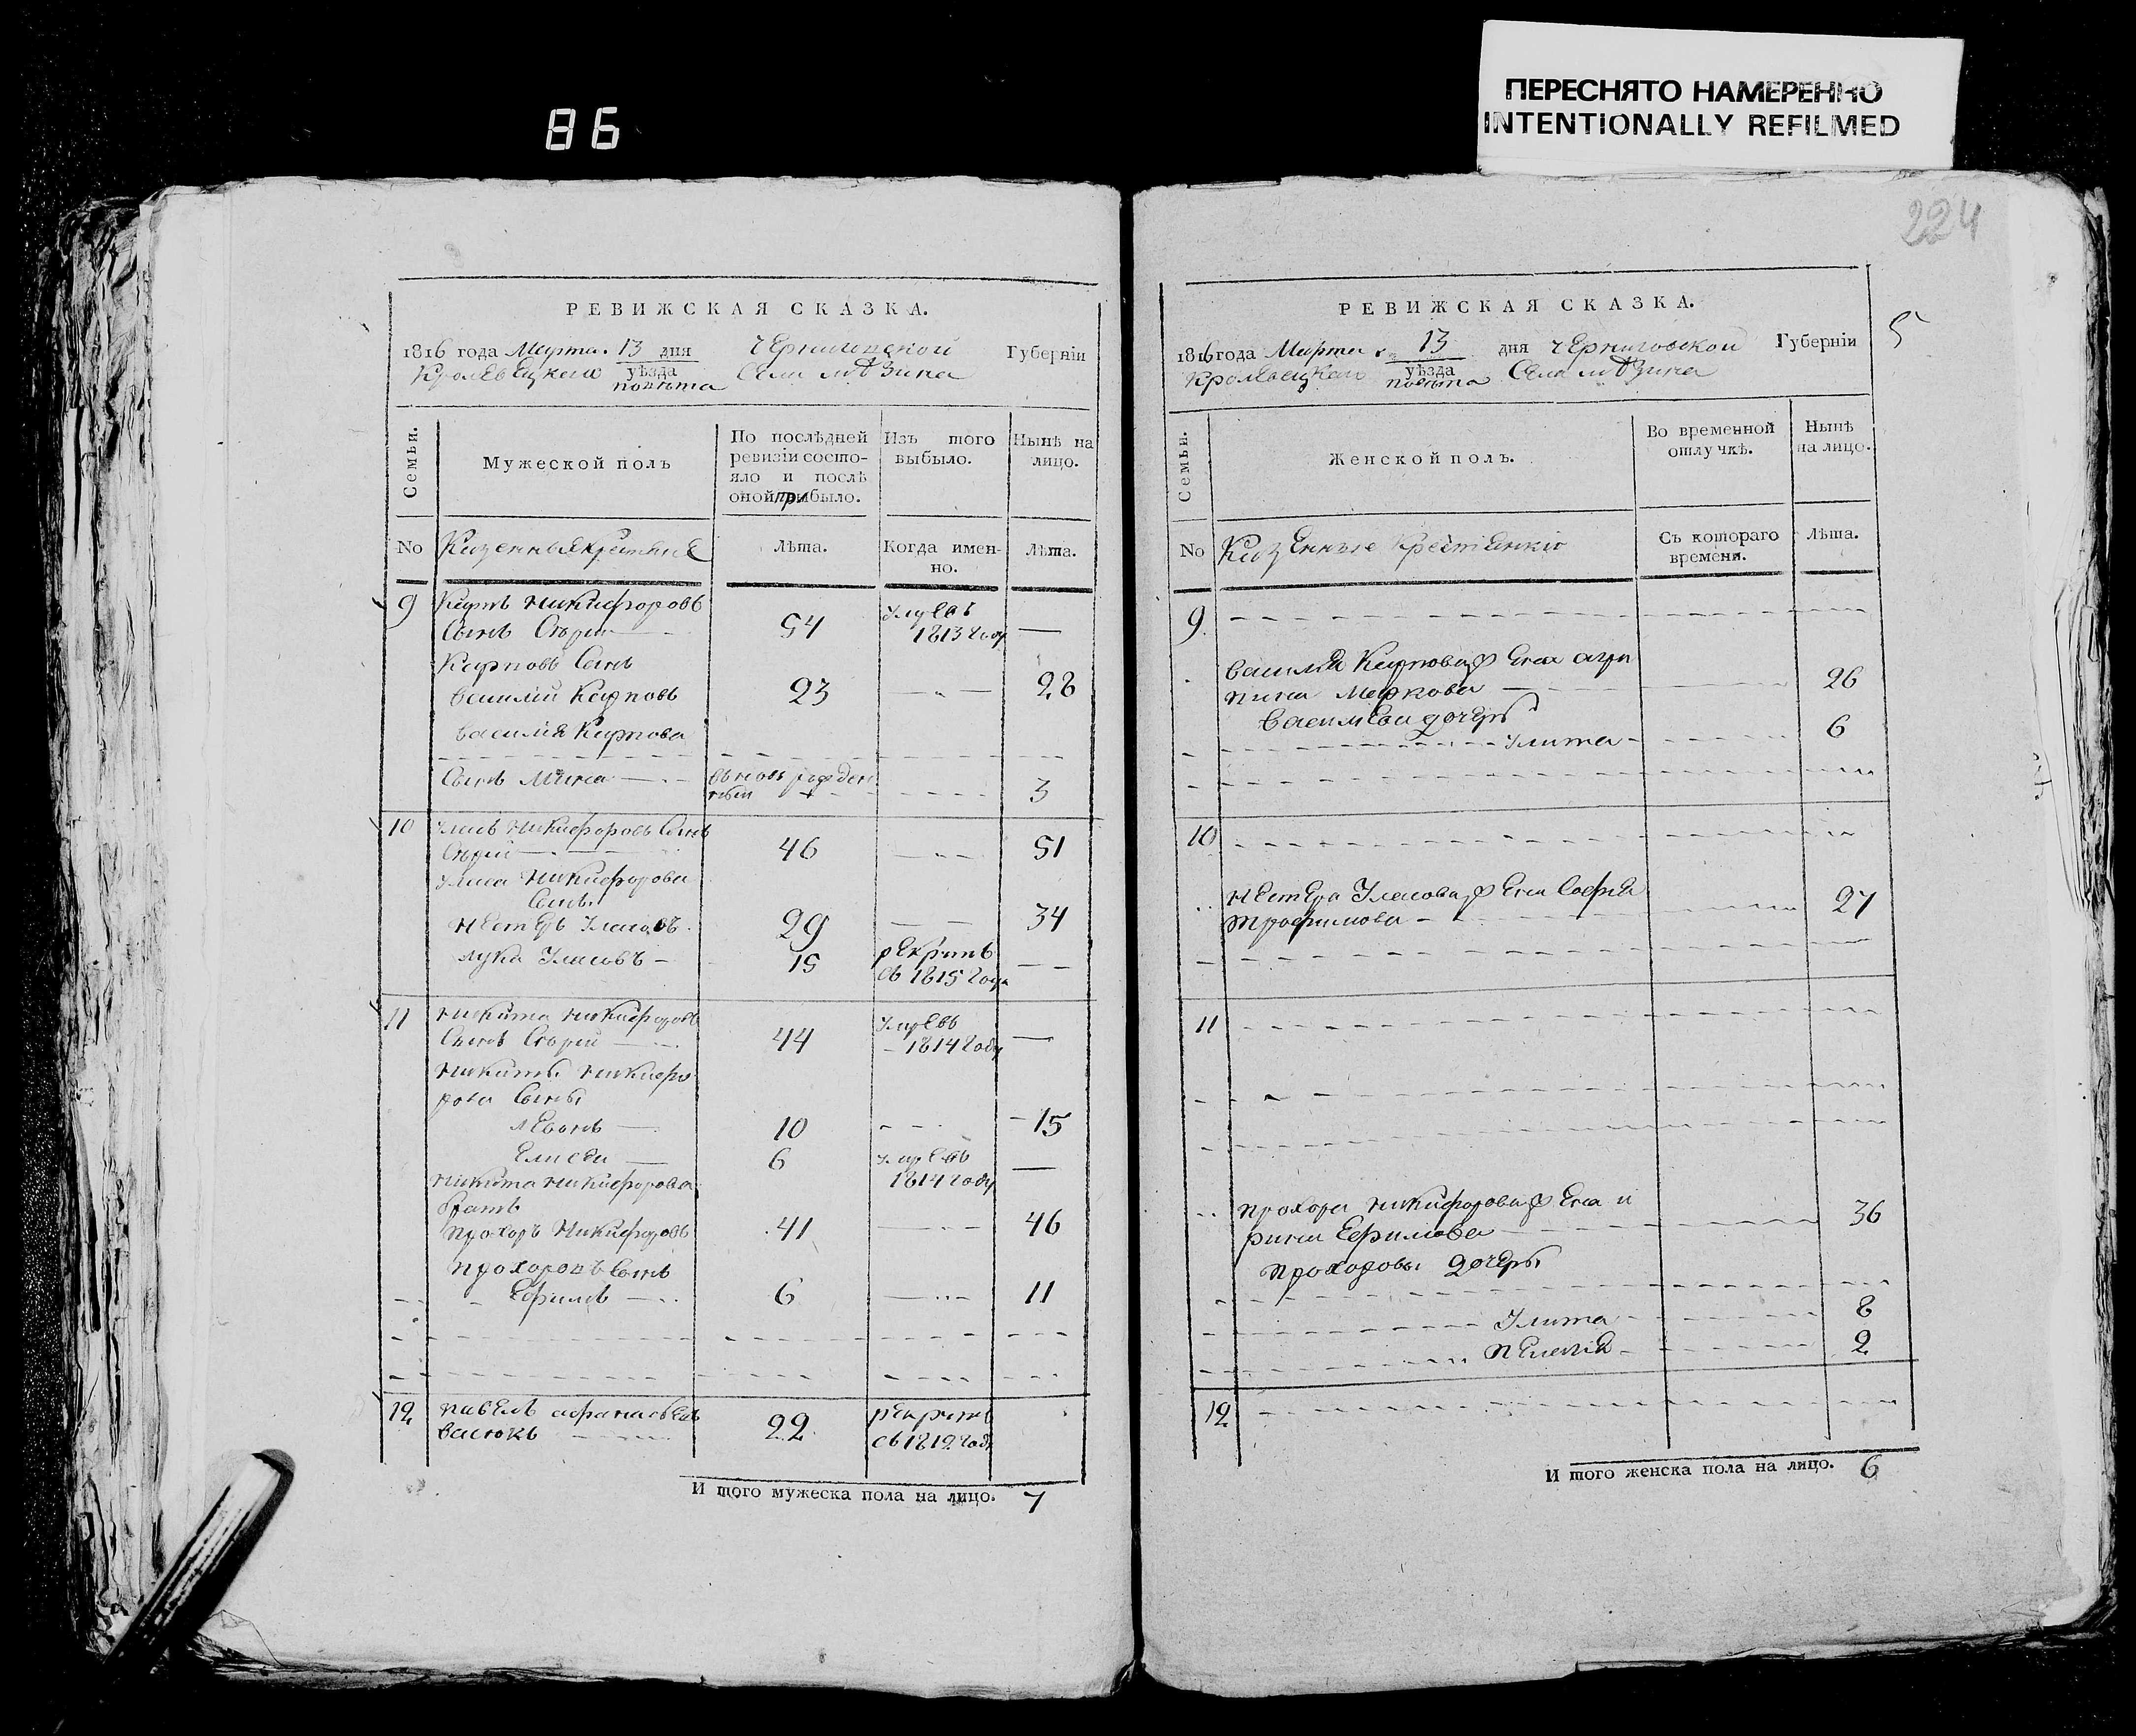 86
ПЕРЕСНЯТО НАМЕРЕННО
INTENTIONALLY REFILMED
РЕВИЖСКАЯ СКАЗКА.
1816 года Марта. 13 дня Черниговской Губернїи
Кролевецкаго уѣзда
повѣта Села
Семьи.
Мужеской полъ
По послѣдней
ревизїи состо-
яло и послѣ
оной прибыло.
Изъ того
выбыло.
Нынѣ на
лицо.
No Казенныя
Лѣта.
Когда имен-
но.
Лѣта.
9 Карпъ Никифоровъ
Сынъ Сѣрый 54 умревъ
1813 году —
Карповъ Сынъ
Василий Карповъ 23 28
Василия Карпова
Сынъ Мина вновь рожден
ный 3
10 Уласъ Никифоровъ Сынъ
Сѣрый 46 51
Уласа Никифорова
Сынъ.
Нестеръ Уласовъ 29 34
Лука Уласовъ 15 рекрутъ
съ 1815 года
11 Никита Никифоровъ
Сынъ Сѣрый 44 умревъ
1814 году —
Никиты Никифо
рова Сыны
Левонъ 10 15
Елисей 6 умревъ
1814 году —
Никита Никифорова
братъ
Прохоръ Никифоровъ 41 46
Прохоровъ Сынъ
Ефимъ 6 11
12 Павелъ Афанасьевъ
Васюкъ 22 рекрутъ
съ 1812 году
И того мужеска пола на лицо. 7
224
5
РЕВИЖСКАЯ СКАЗКА.
1816 года Марта 13 дня Черниговской Губернїи
Кролевецкаго уѣзда
повѣта Села
Семьи.
Женской полъ.
Во временной
отлучкѣ.
Нынѣ
на лицо.
No Казенные
Съ котораго
времени.
Лѣта.
9.
Василия Карпова жена агри
пина Маркова 26
Васильева дочеръ
Улита 6
10
Нестера Уласова жена София
Трофимова 27
11
Прохора Никифорова жена и
рина Ефимова 36
Прохоровы дочеры
Улита 8
Пелагия 2
12
И того женска пола на лицо. 6